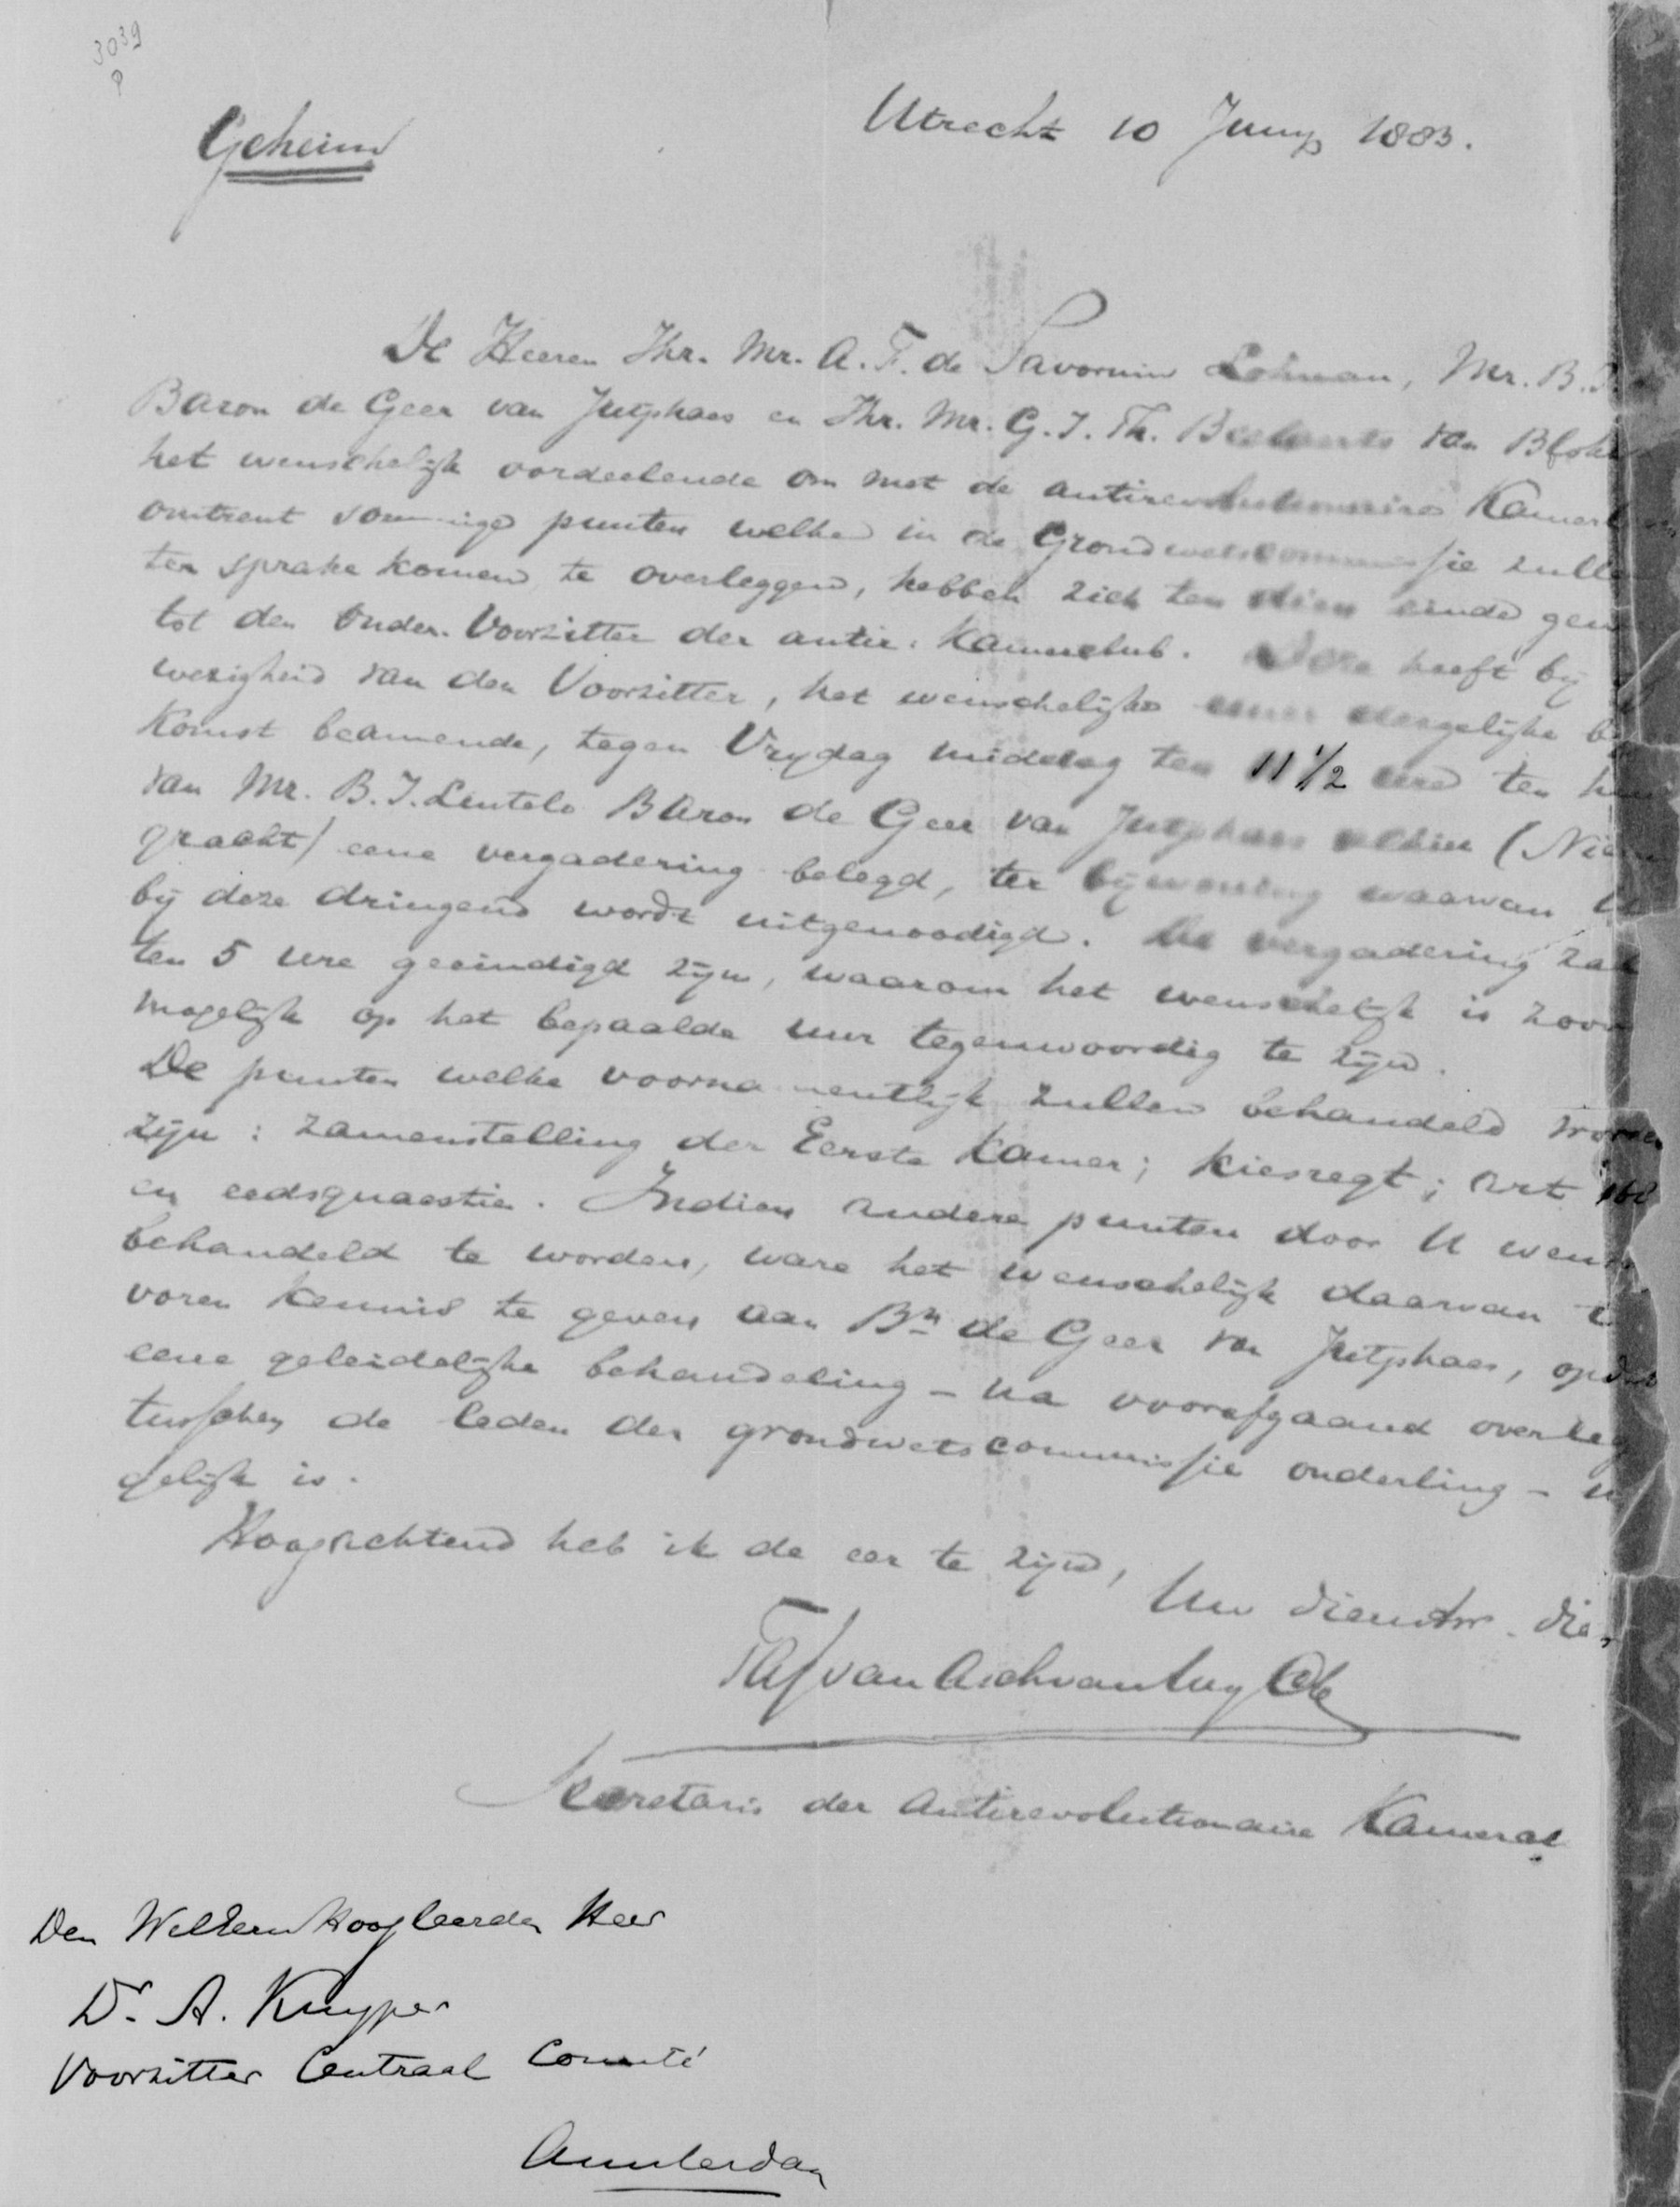 3039
P
Geheim
Utrecht 10 Junij 1883.
De Heeren Jhr. Mr. A. F. de Savornin Lohman, Mr. B.
Baron de Geer van Jutphaas en Jhr. Mr. G. J. Th. Beelaerts van Blokl
het wenschelijk oordeelende om met de antirevolutionaire Kamer
omtrent sommige punten welke in de Grondwetscommissie zulle
ter sprake komen te overleggen, hebben zich ten dien einde gew
tot den Onder-Voorzitter der antir. Kamerclub. Deze heeft bij
wezigheid van den Voorzitter, het wenschelijke eener dergelijke b
komst beamende, tegen Vrydag middag ten 11 1/2 ure ten
van Mr. B. J. Lintelo Baron de Geer van Jutphaas alhier (Nie
gracht) eene vergadering belegd, ter bijwoning waarvan U
bij deze dringend wordt uitgenoodigd. De vergadering zal
ten 5 ure geeindigd zijn, waarom het wenschelijk is zoo
mogelijk op het bepaalde uur tegenwoordig te zijn.
De punten welke voornamentlijk zullen behandeld worden
zijn: zamenstelling der Eerste Kamer; kiesregt; art 168
en eedsquaestie. Indien andere punten door U wen
behandeld te worden, ware het wenschelijk daarvan t
voren kennis te geven aan Bn de Geer van Jutphaas, opdat
eene geleidelijke behandeling – na voorafgaand overleg
tusschen de leden der grondwetscommissie onderling – m
gelijk is.
Hoogachtend heb ik de eer te zijn,
Uw dienstw. die
THJ van Asch van Wyck
Secretaris der Antirevolutionaire Kamercl
Den WelEerw Hoogleerden Heer
Dr. A. Kuyper
Voorzitter Centraal Comité
Amsterdam